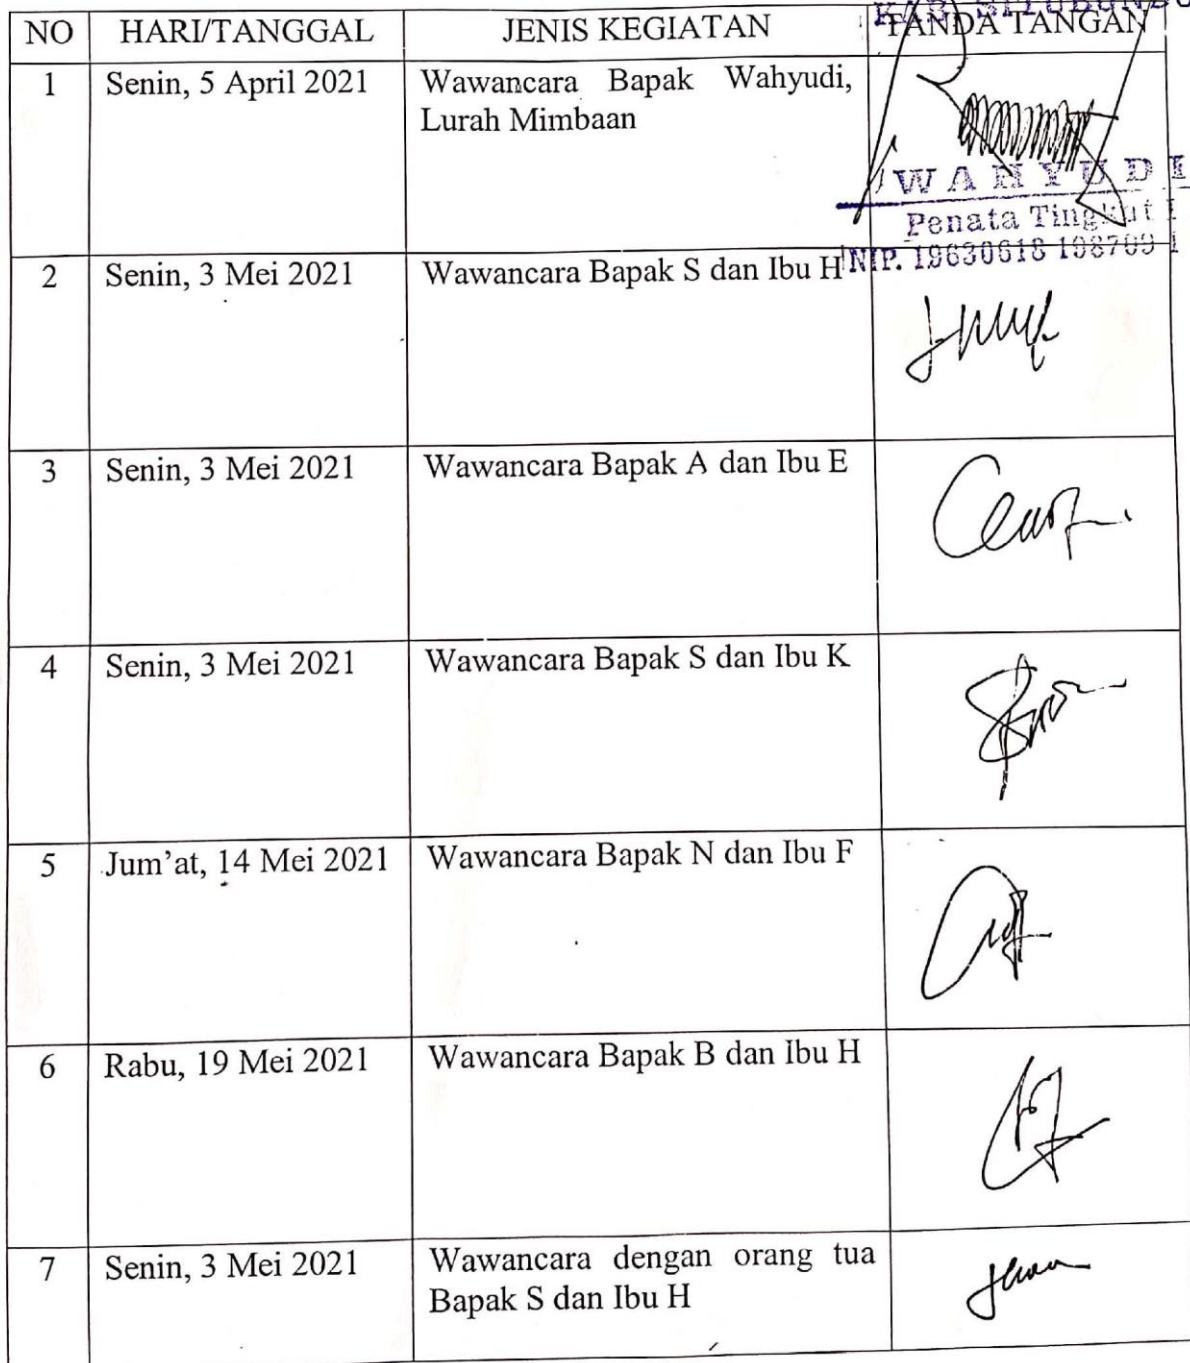 KAB. SITUBONDO
NO HARI/TANGGAL JENIS KEGIATAN TANDA TANGAN
1 Senin, 5 April 2021 Wawancara Bapak Wahyudi,
Lurah Mimbaan
WAHYUDI
Penata Tingkat I
NIP. 19630618 198709 1
2 Senin, 3 Mei 2021 Wawancara Bapak S dan Ibu H
3 Senin, 3 Mei 2021 Wawancara Bapak A dan Ibu E
4 Senin, 3 Mei 2021 Wawancara Bapak S dan Ibu K
5 Jum’at, 14 Mei 2021 Wawancara Bapak N dan Ibu F
6 Rabu, 19 Mei 2021 Wawancara Bapak B dan Ibu H
7 Senin, 3 Mei 2021 Wawancara dengan orang tua
Bapak S dan Ibu H